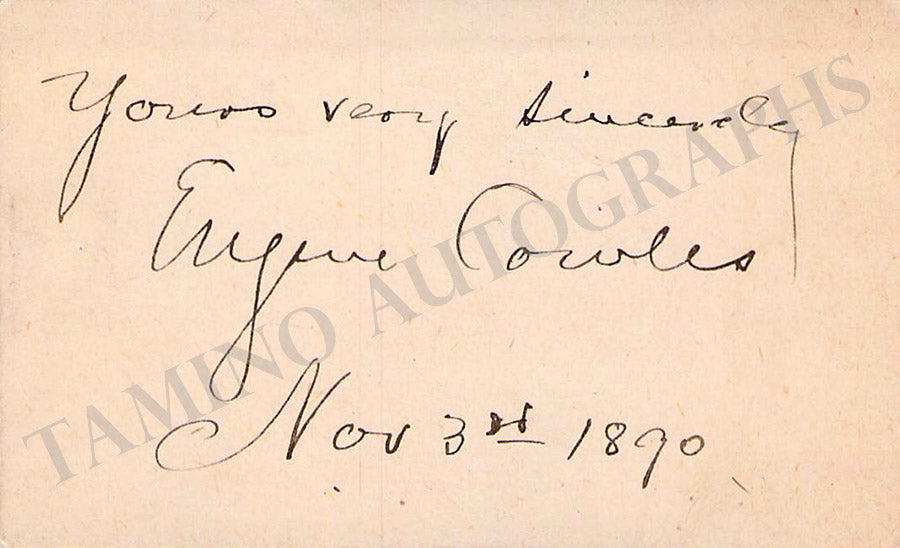 Yours very sincerely
Eugene Cowles
Nov 3rd 1890
TAMINO AUTOGRAPHS